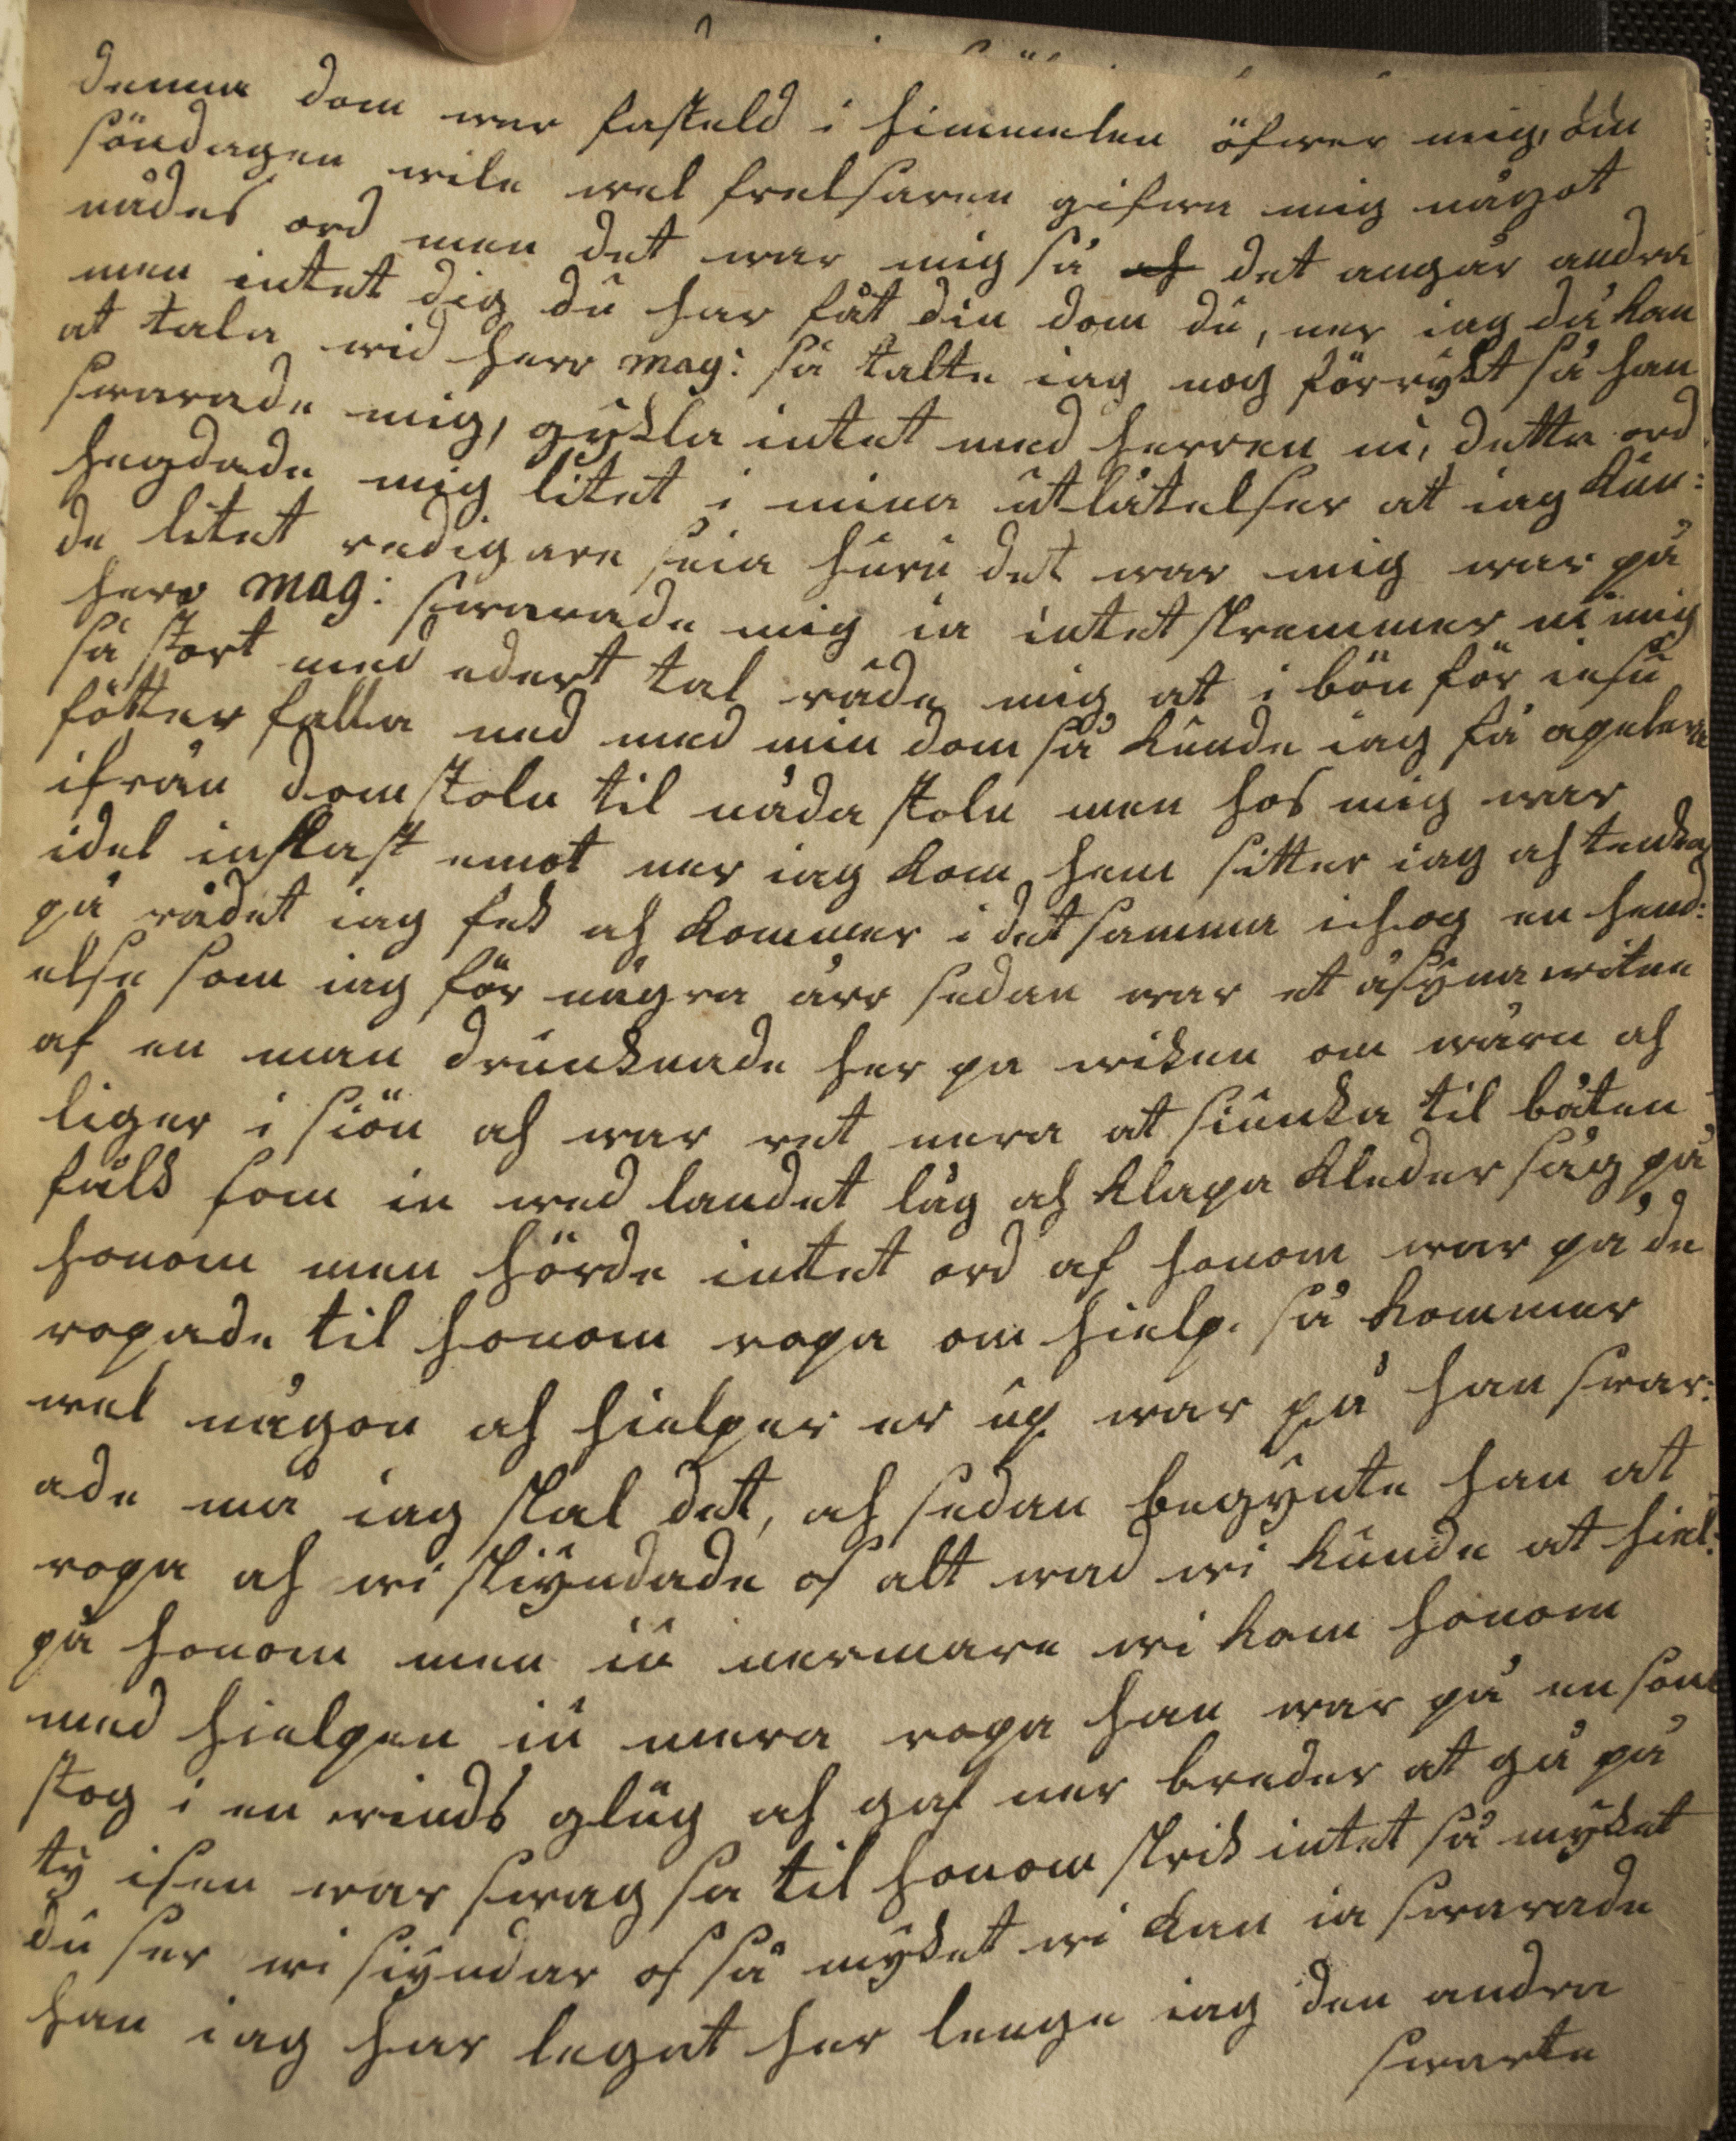 denna dom war fasteld i himmelen öfwer mig, om
söndagen wile wel frelsaren gifwa mig något
nådes ord men det war mig så det angår andra
men intet dig du har fåt din dom du, ner iag då kan
at tala wid herr mag: så talte iag nog förrykt så han
swarade mig, gykla intet med herren ni, detta ord
hegdade mig litet i mina utlåtelser at iag kun:
de litet redigare seia huru det war mig war på
herr mag: swarade mig ia intet skremmer ni mig
så stort med edert tal råde mig at i bön för iesu
fötter falla ned med min dom så kunde iag få apelera
ifrån domstoln til nåda stoln men hos mig war
idel inkast emot ner iag kom hem sitter iag ah tenker
på rådet iag fek ah kommer i det samma ihog en hend:
else som iag för några årr sedan war et åsyna witne
af en man drunknade her pa wiken om wårn ah
liger i siön ah war ret nera at siunka til båten
fulk som in wed landet låg ah klapa kleder såg på
honom men hörde intet ord af honom war på de
ropade til honom ropa om hielp. så kommer
wel någon ah hielper er up war på han swar:
ade må iag skal det, ah sedan begynte han at
ropa ah wi skiyndade os alt wad wi kunde at hiel:
pa honom men iu nermare wi kom honom
med hielpen iu mera ropa han war på en som
stog i en winds glug ah gaf ner breder at gå på
ty isen war swag sa til honom skrik intet så myket
du ser wi siyndar os så myket wi kan ia swarade
han iag har legat her lenge iag den andra
swarte